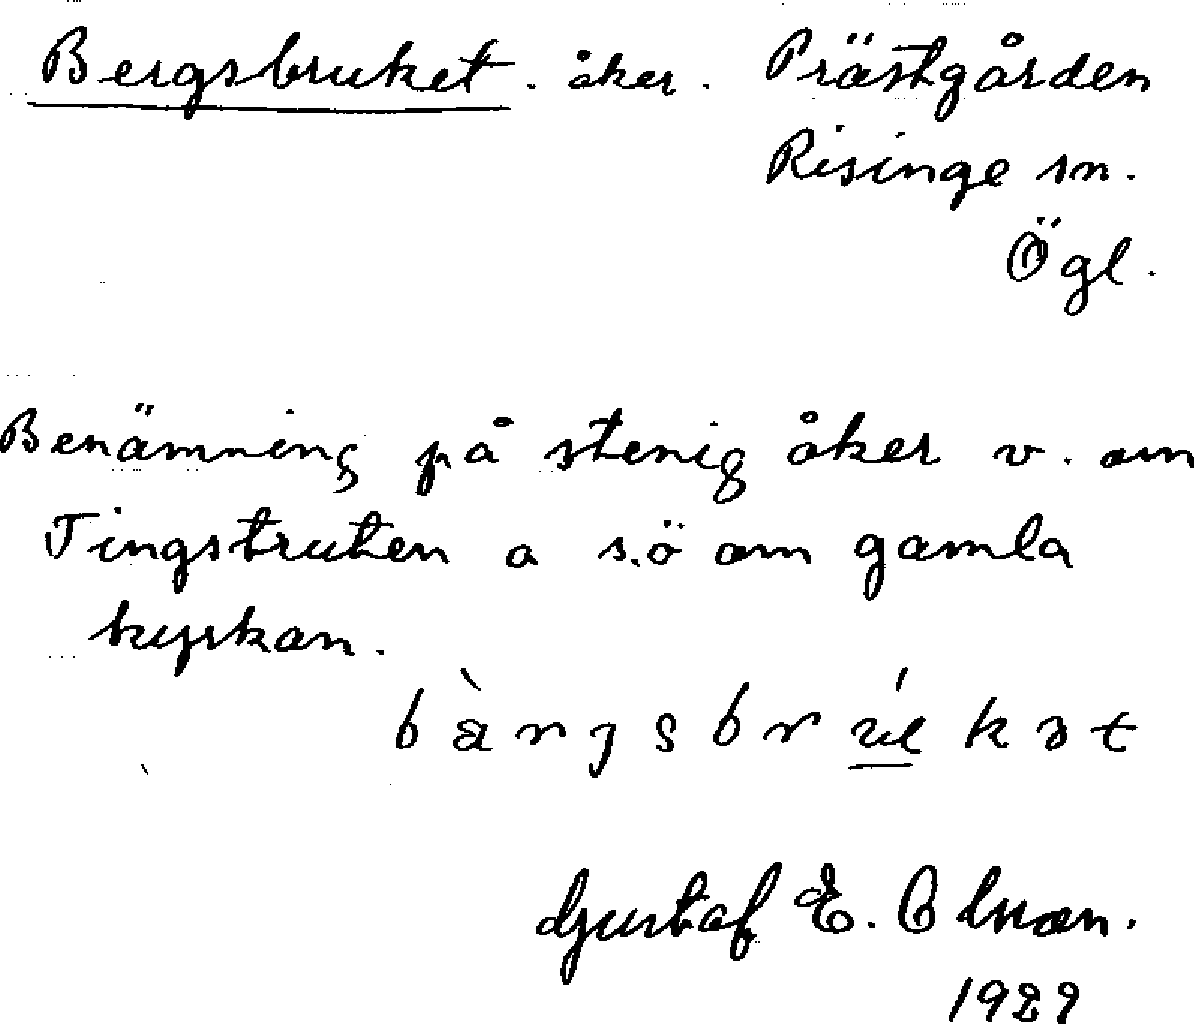 Bergsbruket. åker. Prästgården
Risinge sn.
Ögl.
Benämning på stenig åker v. om
Tingstruten o s.ö om gamla
kyrkan.
bæ̀rjsbrúkət
Gustaf E.
1929